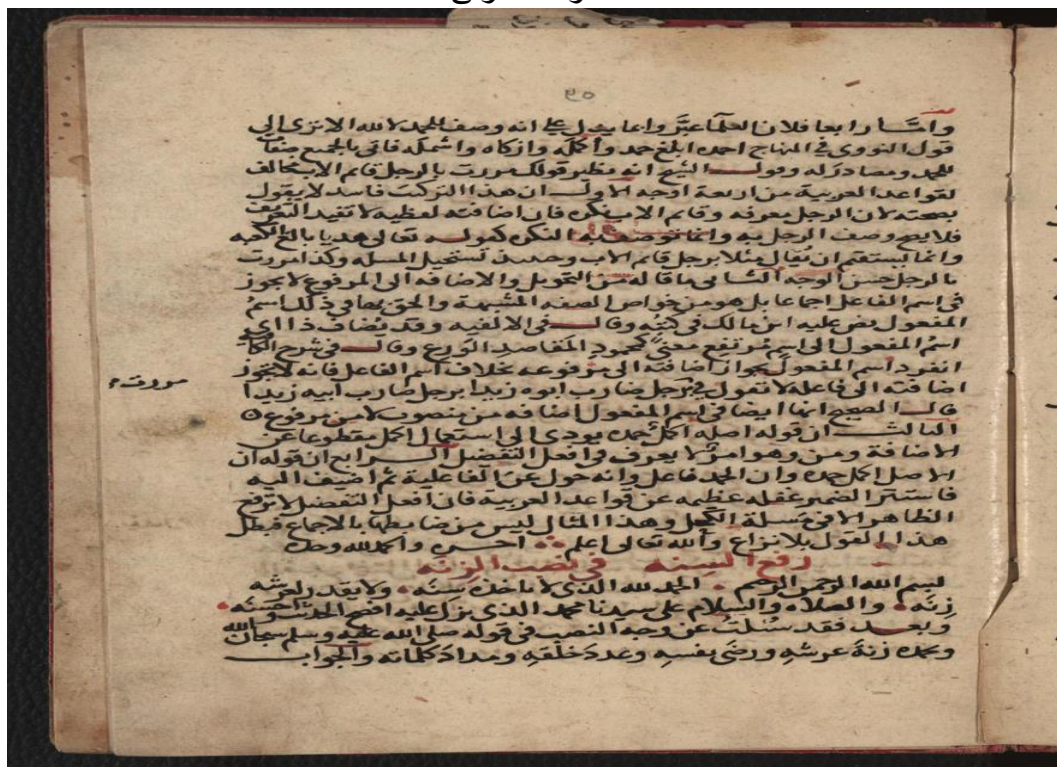 ٩٥
وامّا رابعا فلان العلما عبّر وانما يدل على انه وصف للحمد لا لله الا ترى الى
قول النووى فى المنهاج احمده ابلغ حمد وأكمله وازكاه واشمله فاتى بالجميع صفات
للحمد ومصادر له وقول الشيخ انه نظير قولك مررت بالرجل قائم الاب مخالف
لقواعد العربية من اربعة اوجه الاول ان هذا التركيب فاسد لا يقول
بصحته لان الرجل معرفه وقائم الاب نكره فان اضافته لفظيه لا تفيد التعريف
فلا يصح وصف الرجل به وانما توصف به النكره كقوله تعالى هديا بالغ الكعبه
وانما يستقيم ان يُقال مثلا برجل قائم الاب وحينئذ تستحيل المسله وكذا مررت
بالرجل حسن الوجه الثانى ما قاله من التحويل والاضافه الى المرفوع لا يجوز
فى اسم الفاعل اجماعا بل هو من خواص الصفه المشبهة والحق بها فى ذلك اسمُ
المفعول نص عليه ابن مالك فى كتبه وقال فى الالفيه وقد يُضاف ذا الى
اسمٍ مُرتفع معنىً كمحمودِ المقاصدِ الوَرِع وقال فى شرح الكا
انفرد اسم المفعول بجواز اضافته الى مرفوعه بخلاف اسم الفاعل فانه لا يجوز
اضافته الى فاعله لا تقول فى برجل ضارب ابوه زيدا برجل ضارب ابيه زيدا
قال الصحيح انها ايضا فى اسم المفعول اضافه من منصوب لا من مرفوع
الثالث ان قوله اصله اكمل حمده يودى الى استعمال اكمل مقطوعا عن
الاضافة ومن وهو امرٌ لا يعرف فى افعل التفضيل الرابع ان قوله ان
الاصل اكمل حمده وان الحمد فاعل وانه حول عن الفاعلية ثم اضيف اليه
فاستتر الضمير غفله عظيمه عن قواعد العربيه فان أفعل التفضيل لا ترفع
الظاهر الا فى مسلة الكحل وهذا المثال ليس من ضابطها بالاجماع فبطل
هذا القول بلا نزاع والله تعالى اعلم احسن والحمد لله وحده
رفع السِنه فى نصب الزنه
بسم الله الرحمن الرحيم الحمد لله الذى لا تاخذه سنَه ولا يقدر لعرشه
زِنَه والصلاه والسلام على سيدنا محمد الذى نزل عليه افصح الحديث واحسنه
وبعد فقد سُئلتُ عن وجه النصب فى قوله صلى الله عليه وسلم سبحان الله
وبحمده زنةَ عرشهِ ورضَى نفسهِ وعددَ خلقهِ ومدادَ كلماته والجواب